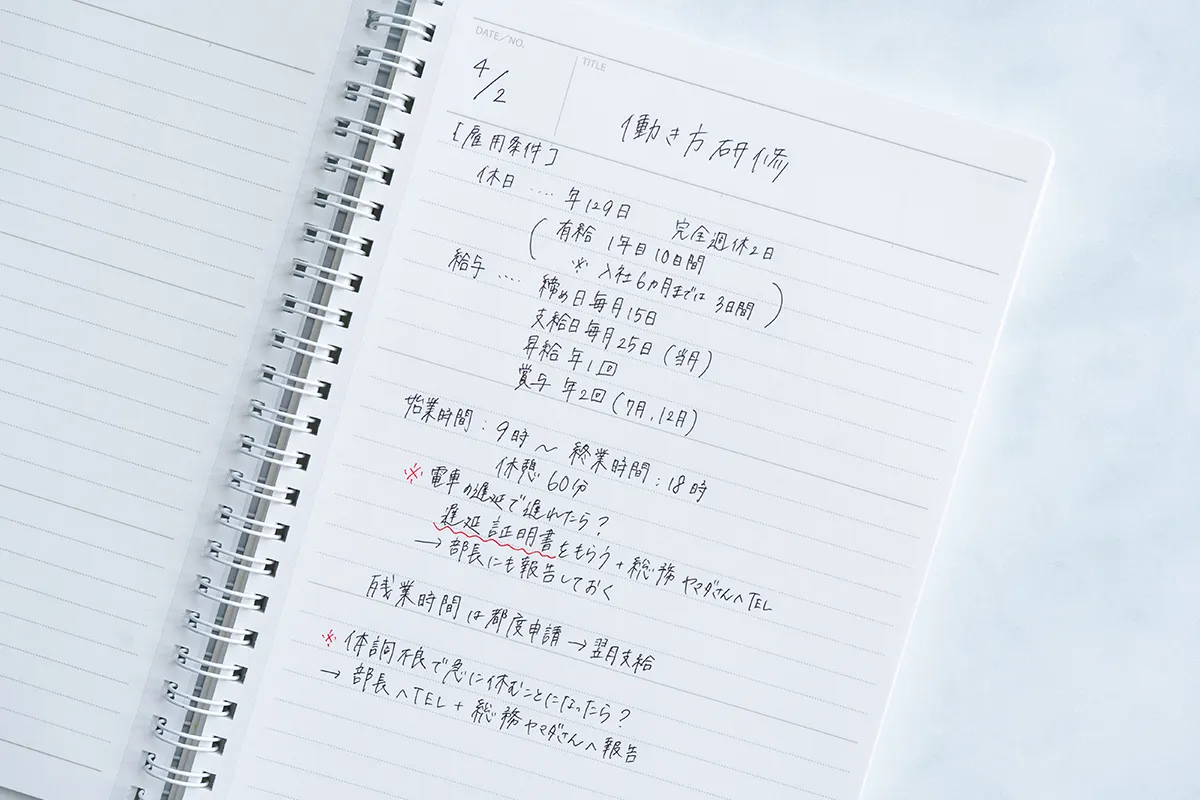 DATE/NO.
TITLE
4/2
働き方研修
[雇用条件]
休日 .... 年129日 完全週休2日
(有給 1年目10日間
※入社6カ月までは3日間)
給与 .... 締め日毎月15日
支給日毎月25日(当月)
昇給 年1回
賞与 年2回(7月,12月)
始業時間:9時 〜 終業時間:18時
休憩60分
※電車の遅延で遅れたら?
遅延証明書をもらう+総務ヤマダさんへTEL
→部長にも報告しておく
残業時間は都度申請→翌月支給
※体調不良で急に休むことになったら?
→部長へTEL+総務ヤマダさんへ報告